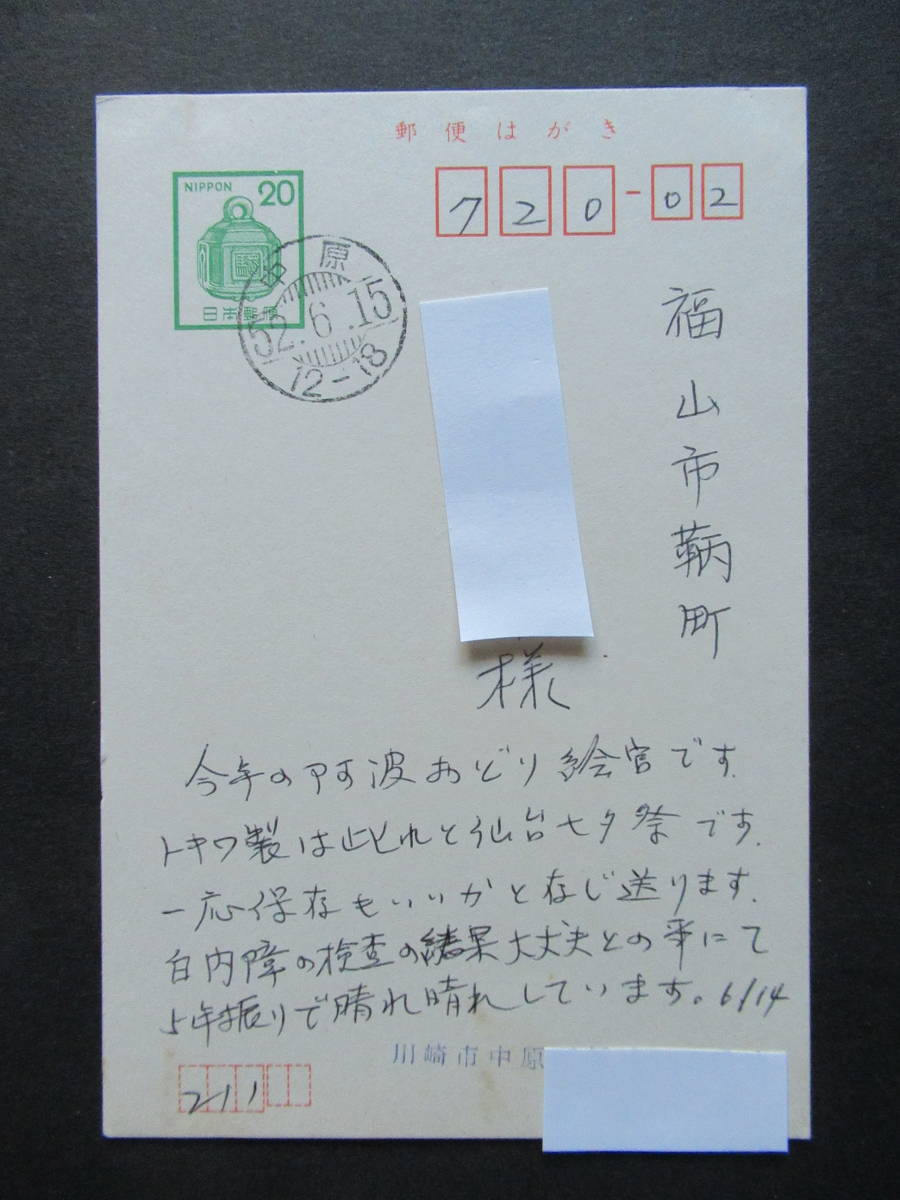 郵便はがき
NIPPON 20
日本郵便
中原
52.6.15
12-18
720-02
福山市鞆町
様
今年の阿波おどり絵官です.
トキワ製は此れと仙台七夕祭です.
一応保存もいいかと存じ送ります.
白内障の検査の結果大丈夫との事にて
5年振りで晴れ晴れしています。6/14
川崎市中原
211